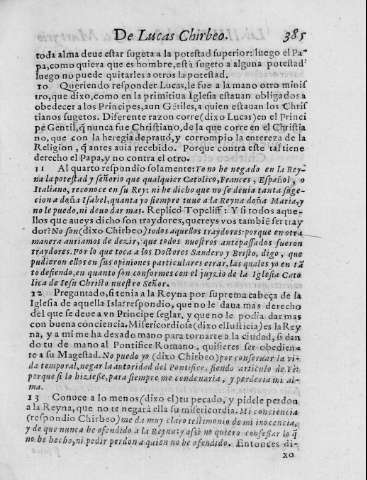 De Lucas Chirbeo. 385
toda alma deue estar sugeta a la potestad superior: luego el Pa-
pa, como quiera que es hombre, està sugeto a alguna potestad
luego no puede quitarles a otros la potestad.
10 Queriendo responder Lucas, le fue a la mano otro minis
tro, que dixo, como en la primitiua Iglesia estauan obligados a
obedecer a los Principes, aun Gẽtiles, a quien estauan los Chris
tianos sugetos. Diferente razon corre (dixo Lucas) en el Princi
pe Gentil, q̃ nunca fue Christiano, de la que corre en el Christia
no, que con la heregia depraud, y corrompio la entereza de la
Religion, q̃ antes auia recebido. Porque contra este tal tiene
derecho el Papa, y no contra el otro.
11 Al quarto respondio solamente: Yo no he negado en la Rey-
na la potestad, y señorio que qualquier Catolico, Frances, Español, o
Italiano, reconoce en su Rey: ni he dicho que no se deuia tanta suge-
cion a doña Isabel, quanta yo siempre tuue a la Reyna doña Maria, y
no le puedo, ni deuo dar mas. Replicò Topcliff: Y si todos aque-
llos que aueys dicho son traydores, quereys vos tambiẽ ser tray
dor? No son (dixo Chirbeo) todos aquellos traydores: porque en otra
manera auriamos de dezir, que todos nuestros antepassados fueron
traydores. Por lo que toca a los Doctores Sandero y Bristo, digo, que
pudieron ellos en sus opiniones particulares errar, las quales yo en tã
to defiendo, en quanto son conformes con el juyzio de la Iglesia Cato
lica de Iesu Christo nuestro Señor.
12 Preguntado, si tenia a la Reyna por suprema cabeça de la
Iglesia de aquella Isla: respondio, que no le daua mas derecho
del que se deue a vn Principe seglar, y que no le podia dar mas
con buena conciencia. Misericordiosa (dixo el Iusticia) es la Rey
na, y a mi me ha dexado mano para tornarte a la ciudad, si dan
do tu de mano al Pontifice Romano, quisieres ser obedien-
te a su Magestad. No puedo yo (dixo Chirbeo) por conseruar la vi-
da temporal, negar la autoridad del Pontifice, siendo articulo de Fè:
porque si lo hiziesse, para siempre me condenaria, y perderia mi al-
ma.
13 Conoce a lo menos (dixo el) tu pecado, y pidele perdon
a la Reyna, que no te negarà ella su misericordia. Mi conciencia
(respondio Chirbeo) me da muy claro testimonio de mi inocencia,
y de que nunca he ofendido a la Reyna: y assi no quiero confessar lo q̃
no he hecho, ni pedir perdon a quien no he ofendido. Entonces di-
xo